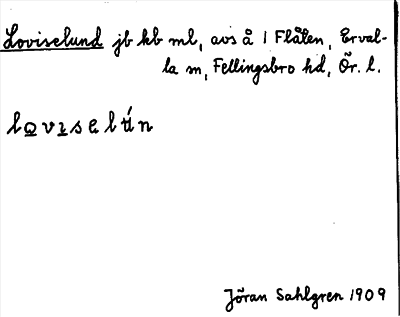 Loviselund jb kb ml, avs å 1 Flåten, Erval-
la sn, Fellingsbro hd, Ör. l.
lovıselún
Jöran Sahlgren 1909